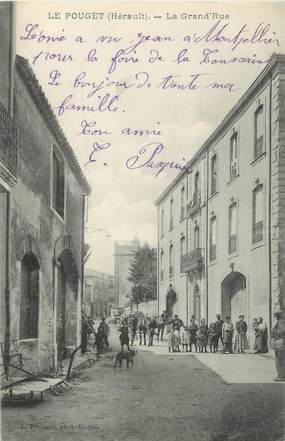 LE POUGET (Hérault). — La Grand'Rue
L'onie a vu jean a Montpellier
pour la foire de la Toussaint
Le bonjour de toute ma
famille.
Ton amie